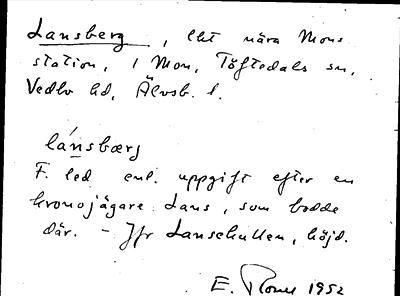 Lansberg, lht nära Mons
station, i Mon, Töftedals sn,
Vedbo hd, Älvsb. l.
lánsbærj
F. led enl. uppgift efter en
kronojägare Lans, som bodde
där. - Jfr Lanskullen, höjd.
E. 1952